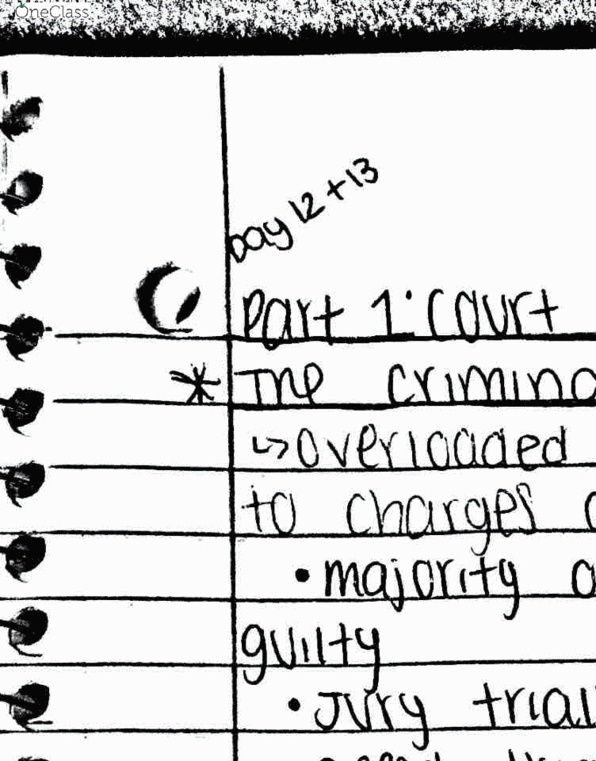 OneClass
Day 12 + 13
Part 1: Court
* The crimina
↳ overloaded
to charges
• majority
guilty
• Jury trial